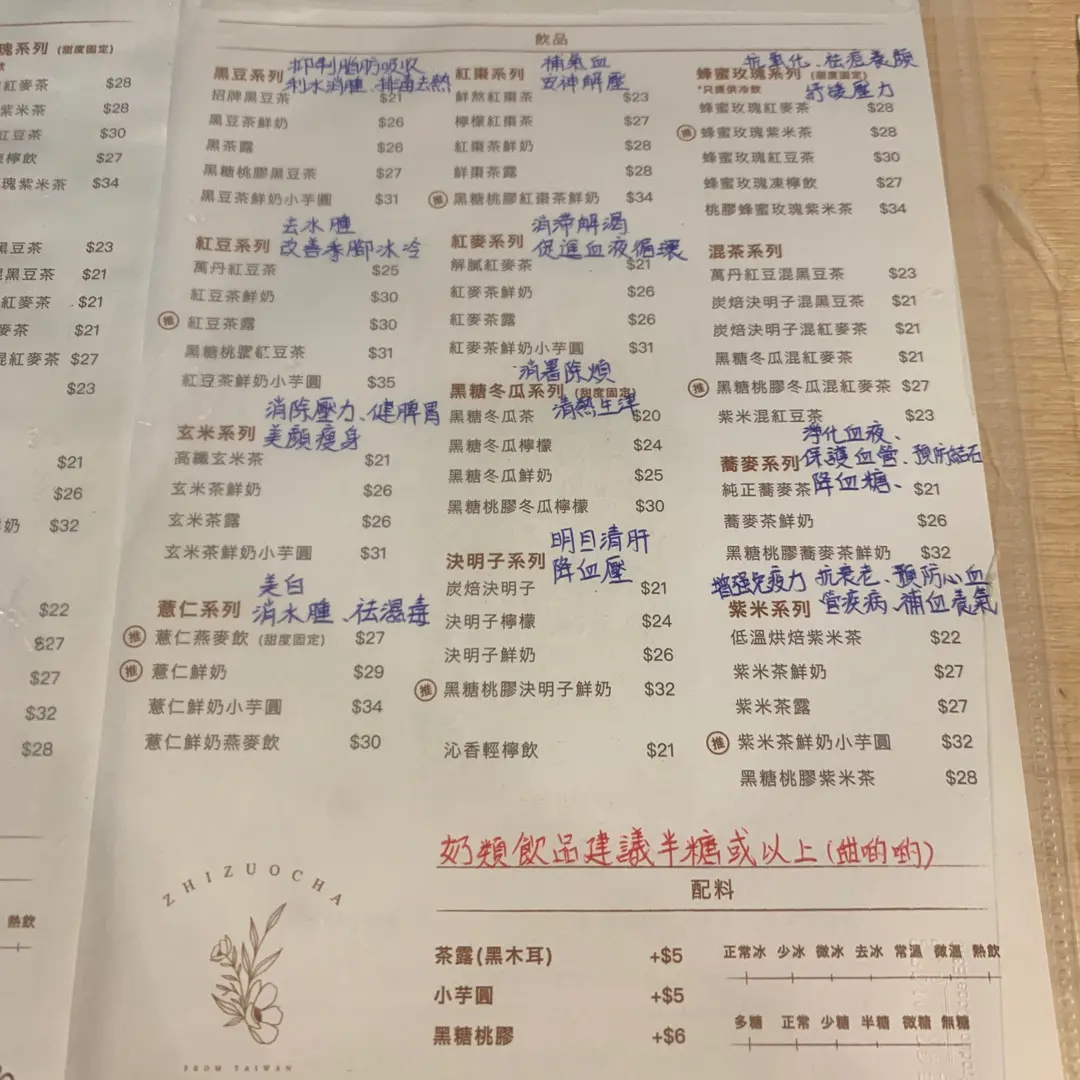 瑰系列 (甜度固定)
紅麥茶 $28
紫米茶 $28
紅豆茶 $30
檸飲 $27
瑰紫米茶 $34
黑豆茶 $23
混黑豆茶 $21
紅麥茶 $21
麥茶 $21
混紅麥茶 $27
$23
$21
$26
奶 $32
$22
$27
$27
$32
$28
熱飲
飲品
黑豆系列 抑制脂肪吸收
利水消腫、排毒去熱
招牌黑豆茶 $21
黑豆茶鮮奶 $26
黑茶露 $26
黑糖桃膠黑豆茶 $27
黑豆茶鮮奶小芋圓 $31
去水腫
紅豆系列 改善手腳冰冷
萬丹紅豆茶 $25
紅豆茶鮮奶 $30
推 紅豆茶露 $30
黑糖桃膠紅豆茶 $31
紅豆茶鮮奶小芋圓 $35
消除壓力、健脾胃
玄米系列 美顏瘦身
高纖玄米茶 $21
玄米茶鮮奶 $26
玄米茶露 $26
玄米茶鮮奶小芋圓 $31
美白
薏仁系列 消水腫、祛濕毒
推 薏仁燕麥飲 (甜度固定) $27
推 薏仁鮮奶 $29
薏仁鮮奶小芋圓 $34
薏仁鮮奶燕麥飲 $30
紅棗系列 補氣血
安神解壓
鮮熬紅棗茶 $23
檸檬紅棗茶 $27
紅棗茶鮮奶 $28
鮮棗茶露 $28
推 黑糖桃膠紅棗茶鮮奶 $34
消滯解渴
紅麥系列 促進血液循環
解膩紅麥茶 $21
紅麥茶鮮奶 $26
紅麥茶露 $26
紅麥茶鮮奶小芋圓 $31
消署除煩
黑糖冬瓜系列 (甜度固定)
清熱生津
黑糖冬瓜茶 $20
黑糖冬瓜檸檬 $24
黑糖冬瓜鮮奶 $25
黑糖桃膠冬瓜檸檬 $30
明目清肝
決明子系列 降血壓
炭焙決明子 $21
決明子檸檬 $24
決明子鮮奶 $26
推 黑糖桃膠決明子鮮奶 $32
沁香輕檸飲 $21
抗氧化、祛痘養顏
蜂蜜玫瑰系列 (甜度固定)
*只提供冷飲 紓緩壓力
蜂蜜玫瑰紅麥茶 $28
推 蜂蜜玫瑰紫米茶 $28
蜂蜜玫瑰紅豆茶 $30
蜂蜜玫瑰凍檸飲 $27
桃膠蜂蜜玫瑰紫米茶 $34
混茶系列
萬丹紅豆混黑豆茶 $23
炭焙決明子混黑豆茶 $21
炭焙決明子混紅麥茶 $21
黑糖冬瓜混紅麥茶 $21
推 黑糖桃膠冬瓜混紅麥茶 $27
紫米混紅豆茶 $23
淨化血液、
蕎麥系列 保護血管、預防結石
純正蕎麥茶 降血糖、 $21
蕎麥茶鮮奶 $26
黑糖桃膠蕎麥茶鮮奶 $32
增强免疫力 抗衰老、預防心血
紫米系列 管疾病、補血養氣
低溫烘焙紫米茶 $22
紫米茶鮮奶 $27
紫米茶露 $27
推 紫米茶鮮奶小芋圓 $32
黑糖桃膠紫米茶 $28
奶類飲品建議半糖或以上(甜啲啲)
配料
茶露(黑木耳) +$5
小芋圓 +$5
黑糖桃膠 +$6
正常冰 少冰 微冰 去冰 常溫 微溫 熱飲
多糖 正常 少糖 半糖 微糖 無糖
ZHIZUOCHA
FROM TAIWAN